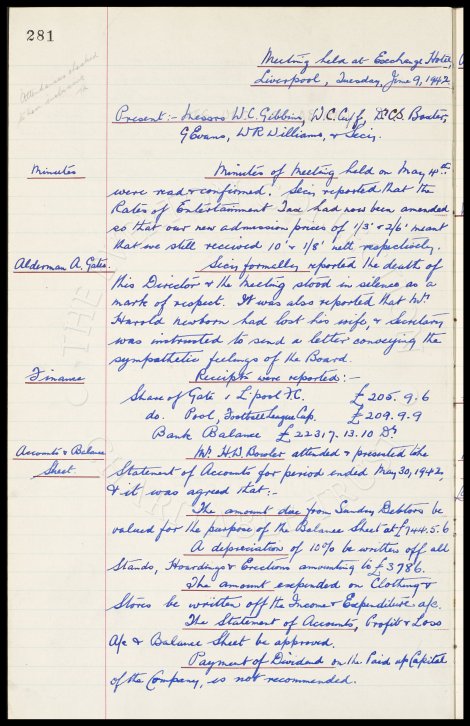 281
Attendances checked
Meeting held at Exchange Hotel,
Liverpool, Tuesday, June 9, 1942
Present:- Messrs W.C. Gibbins, W.C. Cuff, Dr C.S. Baxter,
G Evans, W R Williams, & Secy.
Minutes
Minutes of Meeting held on May 4th
were read & confirmed. Secy reported that the
Rates of Entertainment Tax had now been amended
so that our new admission prices of 1/3d & 2/6d meant
that we still received 10d & 1/8d nett respectively.
Alderman A. Gates.
Secy formally reported the death of
this Director & the Meeting stood in silence as a
mark of respect. It was also reported that Mr
Harold Newborn had lost his wife, & Secretary
was instructed to send a letter conveying the
sympathetic feelings of the Board.
Finance
Receipts were reported:-
Share of Gate v L'pool F.C. £205.9.6
do. Pool, Football League Cup, £209.9.9
Bank Balance £22317.13.10 Dr
Accounts & Balance
Sheet.
Mr. H.D. Bowler attended & presented the
Statement of Accounts for period ended May 30, 1942,
& it was agreed that:-
The amount due from Sundry Debtors be
valued for the purpose of the Balance Sheet at £744.5.6
A depreciation of 10% be written off all
Stands, Hoardings & Erections amounting to £3786.
The amount expended on Clothing &
Stores be written off the Income & Expenditure a/c.
The Statement of Accounts, Profit & Loss
A/c & Balance Sheet be approved.
Payment of Dividend on the Paid up Capital
of the Company, is not recommended.